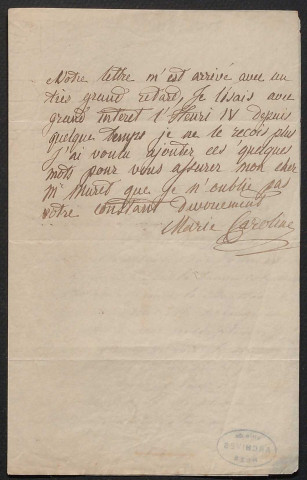 Votre lettre m'est arrivé avec un
très grand retard, Je lisais avec
grand interet l'Henri IV depuis
quelque temps je ne le recois plus
j'ai voulu ajouter ces quelques
mots pour vous assurer mon cher
Mr Muret que je n'oublie pas
votre constant dévouement
Marie Caroline
ARCHIVES